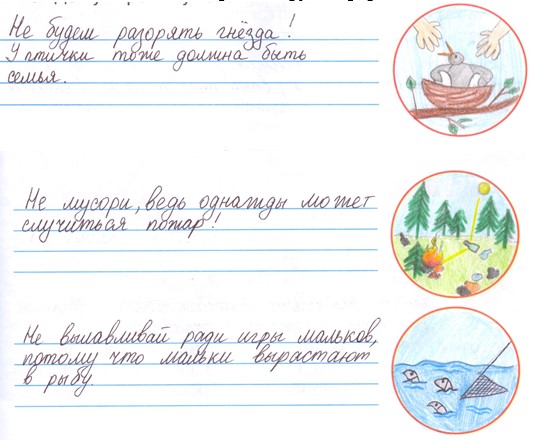 Не будем разорять гнёзда!
У птички тоже должна быть
семья.
Не мусори, ведь однажды может
случиться пожар!
Не вылавливай ради игры мальков,
потому что мальки вырастают
в рыбу